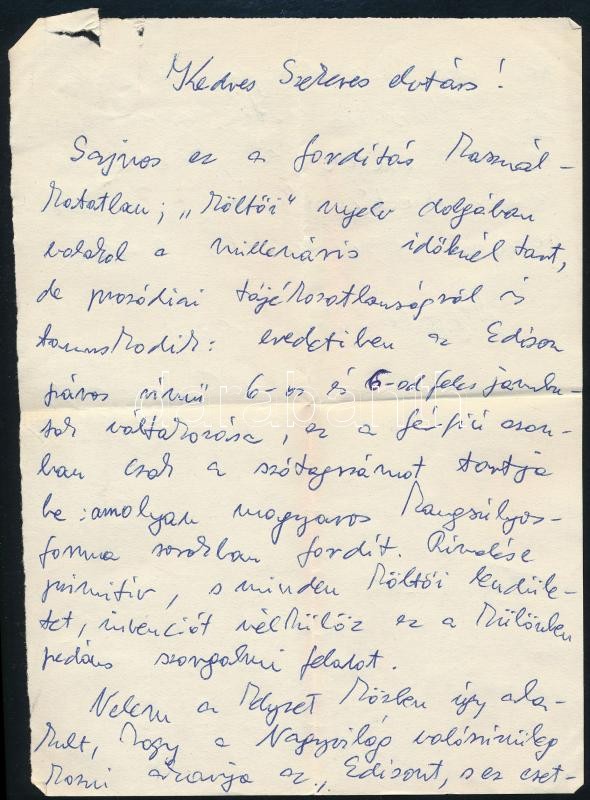 Kedves Szerves elvtárs!
Sajnos ez a fordítás használ-
hatatlan; „költői" nyelv dolgában
valahol a millenáris időknél tart,
de prozódiai tájékozatlanságról is
tanuskodik: eredetiben az Edison
páros rímű 6-os és 6-odfeles jambu-
sok váltakozása, ez a férfiú azon-
ban csak a szótagszámot tartja
be: amolyan magyaros hangsúlyos-
forma sorokban fordít. Rímelése
primitív, s minden költői lendüle-
tet, invenciót nélkülöz ez a különben
pedáns szorgalmú feladat.
Nekem a helyzet közben úgy ala-
kult, hogy a Nagyvilág valószinüleg
hozni akarja az „Edisont, s ez eset-
darabanth